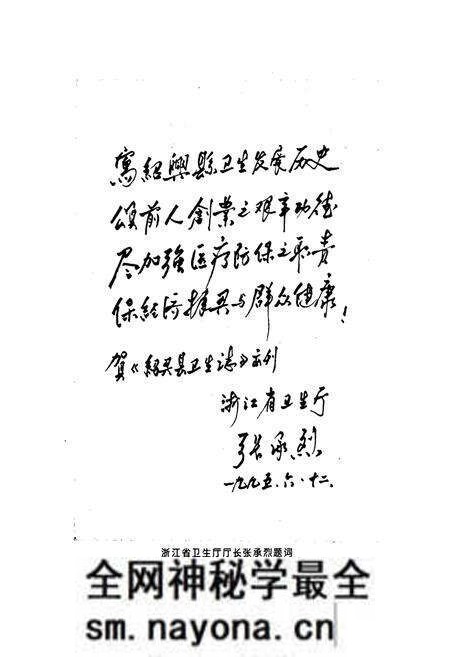 寫紹興縣卫生发展历史
頌前人創業之艰辛功德
尽加强医疗防保之职责
保经济振兴与群众健康!
贺《绍兴县卫生志》付刊
浙江省卫生厅
张承烈
一九九五.六.十二.
浙江省卫生厅厅长张承烈题词
全网神秘学最全
sm.nayona.cn